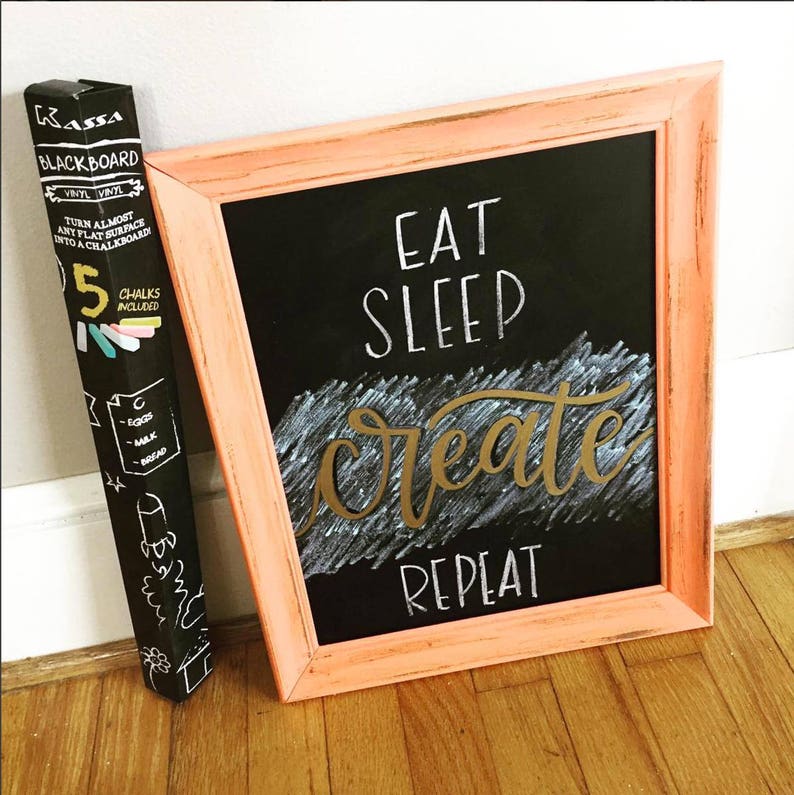 KASSA
BLACKBOARD
VINYL VINYL
TURN ALMOST
ANY FLAT SURFACE
INTO A CHALKBOARD!
5
CHALKS
INCLUDED
C
- EGGS
- MILK
- BREAD
EAT
SLEEP
create
REPEAT